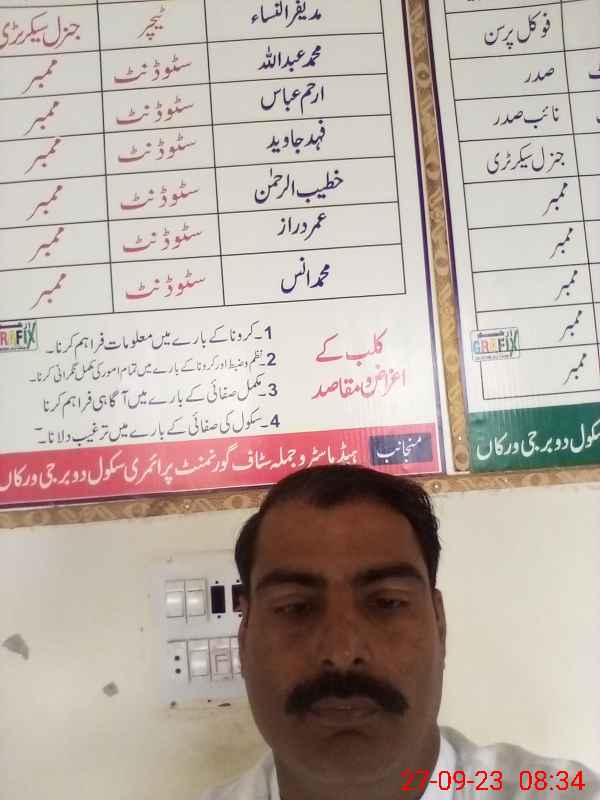 مدیقر النساء ٹیچر جنرل سیکرٹری
محمد عبداللہ سٹوڈنٹ ممبر
ارحم عباس سٹوڈنٹ ممبر
فہد جاوید سٹوڈنٹ ممبر
خطیب الرحمٰن سٹوڈنٹ ممبر
عمر دراز سٹوڈنٹ ممبر
محمد انس سٹوڈنٹ ممبر
کلب کے
اغراض و مقاصد
1۔کرونا کے بارے میں معلومات فراہم کرنا۔
2۔نظم و ضبط اور کرونا کے بارے میں تمام امور کی مکمل نگرانی کرنا۔
3۔مکمل صفائی کے بارے میں آگاہی فراہم کرنا
4۔سکول کی صفائی کے بارے میں ترغیب دلانا۔
منجانب ہیڈ ماسٹر و جملہ سٹاف گورنمنٹ پرائمری سکول دو برجی ورکاں
GRAFIX
فوکل پرسن
صدر
نائب صدر
جنرل سیکرٹری
ممبر
ممبر
ممبر
ممبر
ممبر
GRAFIX
سکول دو برجی ورکاں
27-09-23 08:34